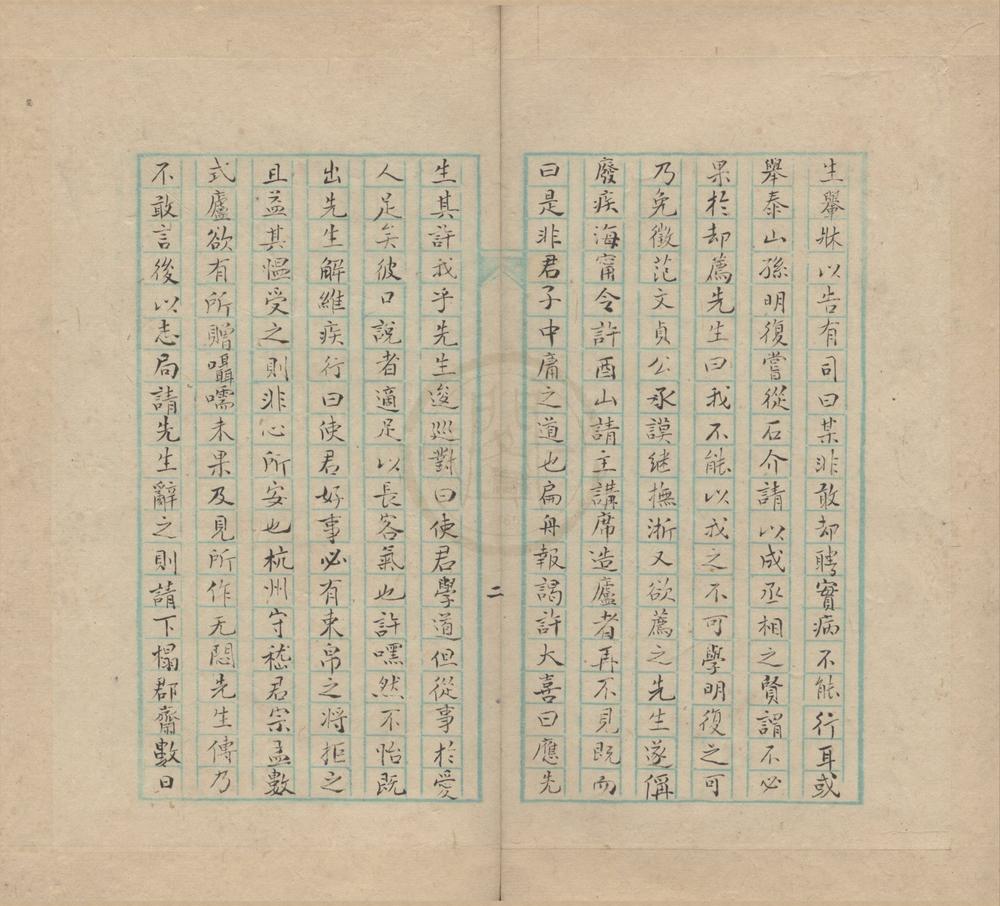 生舉牀以告有司曰某非敢却聘實病不能行耳或
舉泰山孫明復嘗從石介請以成丞相之賢謂不必
果於却薦先生曰我不能以我之不可學明復之可
乃免徵范文貞公承謨継撫淅又欲薦之先生遂稱
廢疾海甯令許酉山請主講席造廬者再不見既而
曰是非君子中庸之道也扁舟報謁許大喜曰應先
二
生其許我乎先生逡巡對曰使君學道但從事於愛
人足矣彼口說者適足以長客氣也許嘿然不怡既
出先生解維疾行曰使君好事必有束帛之將拒之
且益其慍受之則非心所安也杭州守嵇君宗孟數
式廬欲有所贈囁嚅未果及見所作无悶先生傳乃
不敢言後以志局請先生辭之則請下榻郡齋數日